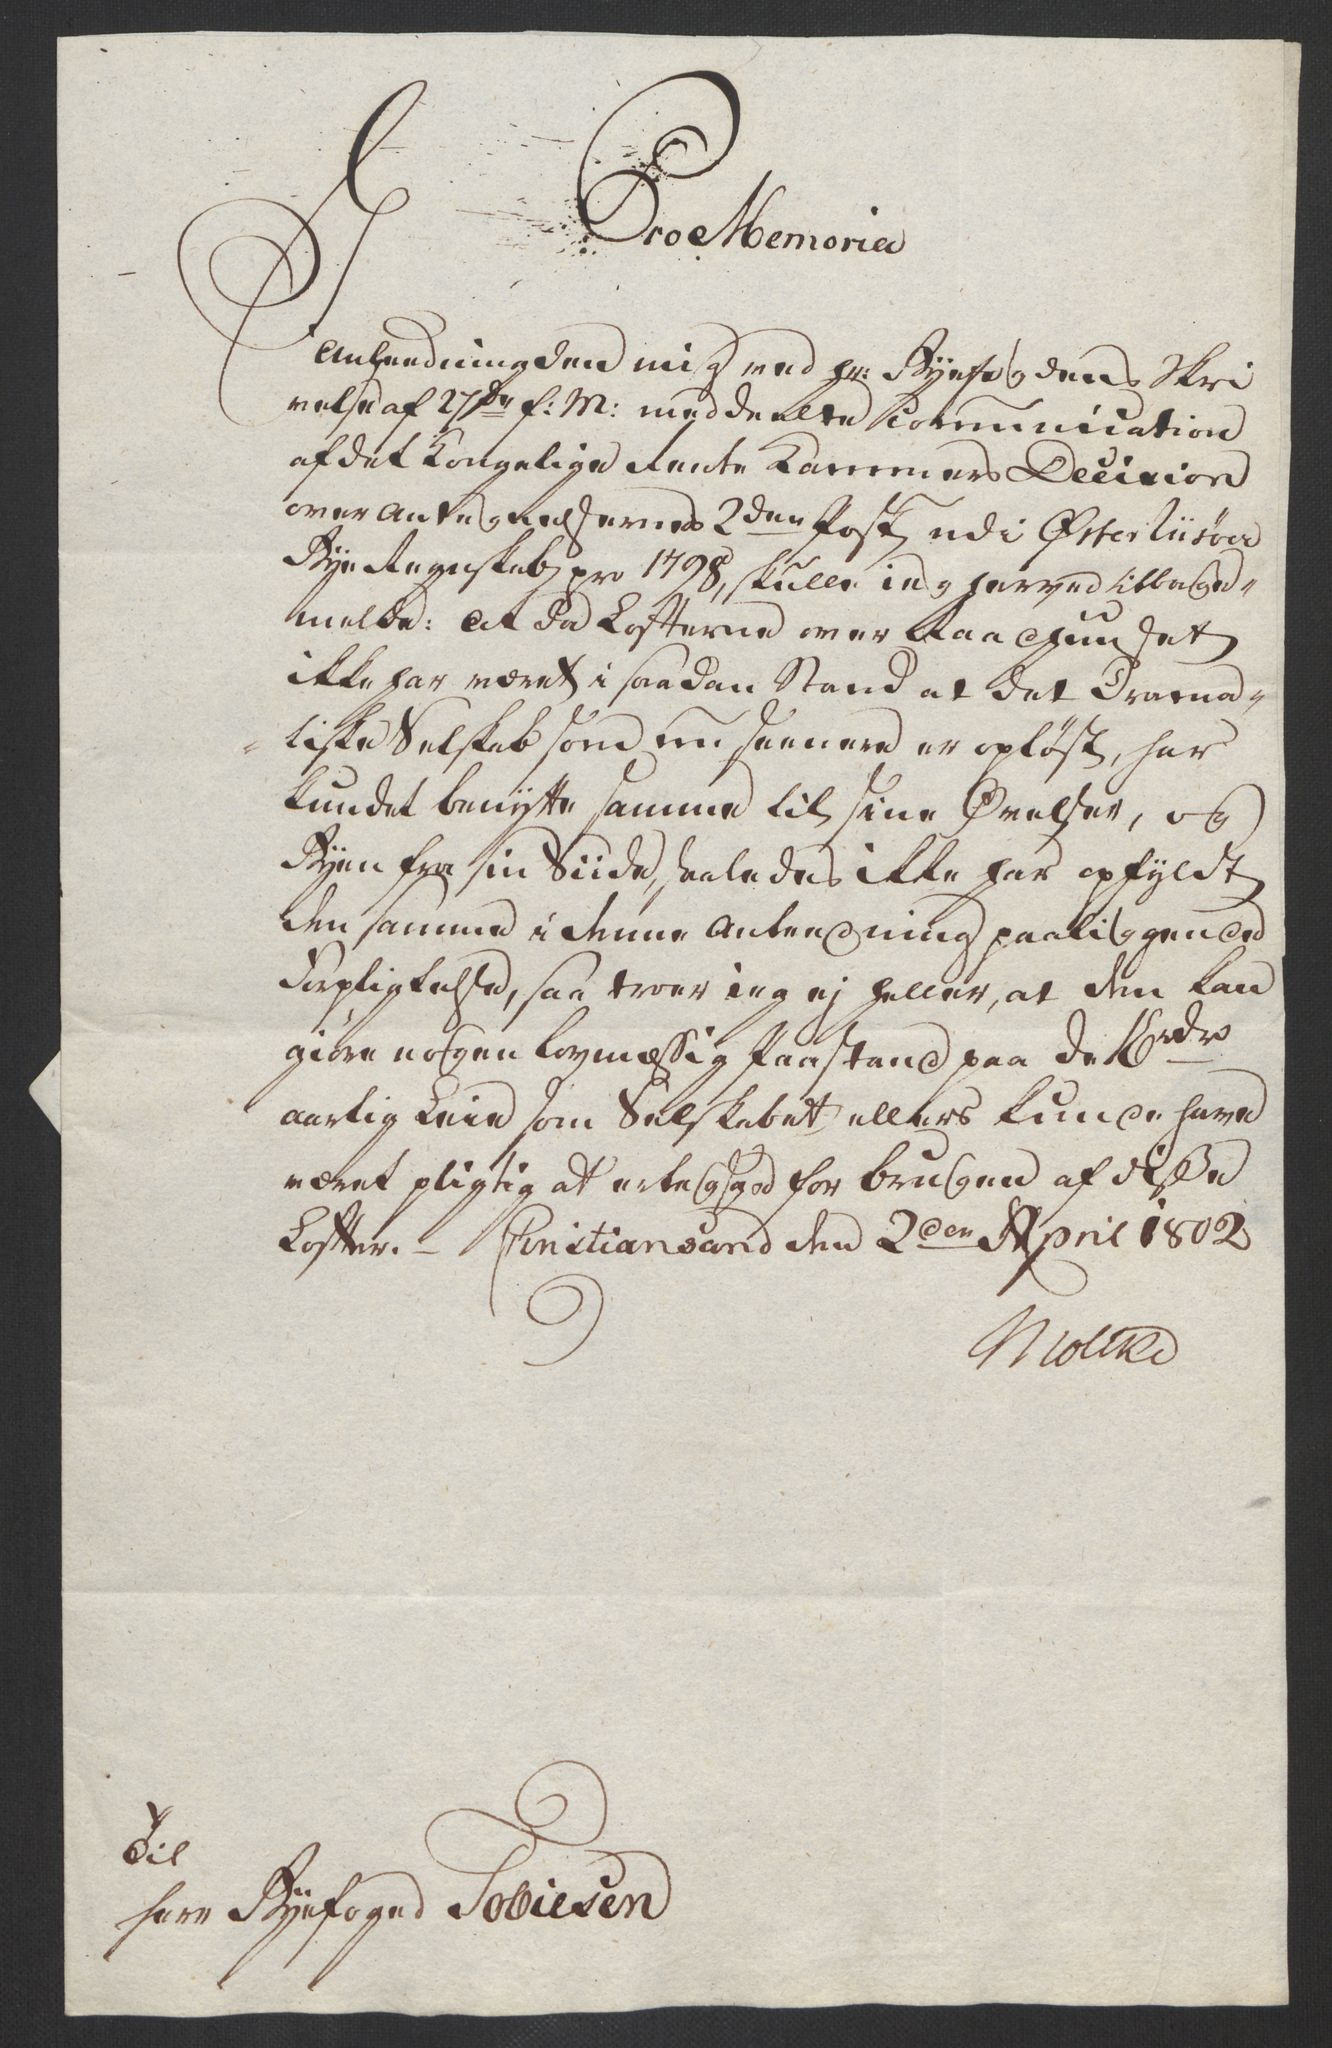 Pro Memoria
I
Anleedning den mig ved hr: Byefogdens Skri
velse af 27de f: M: meddeelte Communication
af det Kongelige Rente Kammers Decision
over Antegnelsernes 2den Post udi Østerriisøer
Bye Regnskab pro 1798, skulle ieg herved tilbage-
melde: at da Lofterne over Raadhuuset
ikke har været i saadan Stand at det Drama-
-tiske Selskab som nu seenere er opløst, har
kundet benytte samme til sine Øvelser, og
Byen fra sin Siide, saaledes ikke har opfyldt
den samme i denne Anleedning paaliggende
Forpligtelse, saa troer ieg ej heller, at den kan
giøre nogen lovmæssig Paastand paa de Rdr
aarlig Leie som Selskabet ellers kunde have
været pligtig at erlegge for brugen af disse
Lofter. - Christiansand den 2den April 1802
Moltke
Til
Herr Byefoged Tobiesen